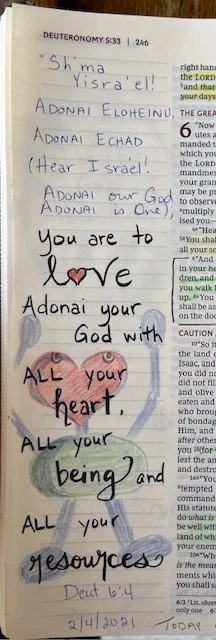 DEUTERONOMY 5:33 | 246
"Sh'ma
Yisra'el!
ADONAI ELOHEINU,
ADONAI ECHAD
(Hear Israel!
ADONAI our God
ADONAI is One),
you are to
love
Adonai your
God with
ALL your
heart,
ALL your
being and
ALL your
resources
Deut 6:4
2/4/2021 TODAY
right hand
the LORD
and that
your days
THE GREA
6 "Now
utes a
manded t
which you
the LORD
mandmen
your gran
may be p
to observe
multiply
ised you—
"Hea
You shal
all your so
"And
in your he
dren, and
you walk b
up. You
shall be as
on the doo
CAUTION
"So it
the land o
Isaac, and
you did no
did not fil
and olive
eaten and
who brou
of bondag
Him, and
after othe
you (for
lest the an
and destro
"You
tempted
command
His statute
do what is
be well wit
land of whi
your
"Wh
is the mean
ments whi
you shall s
6:3 'Lit. obse
only one 6: